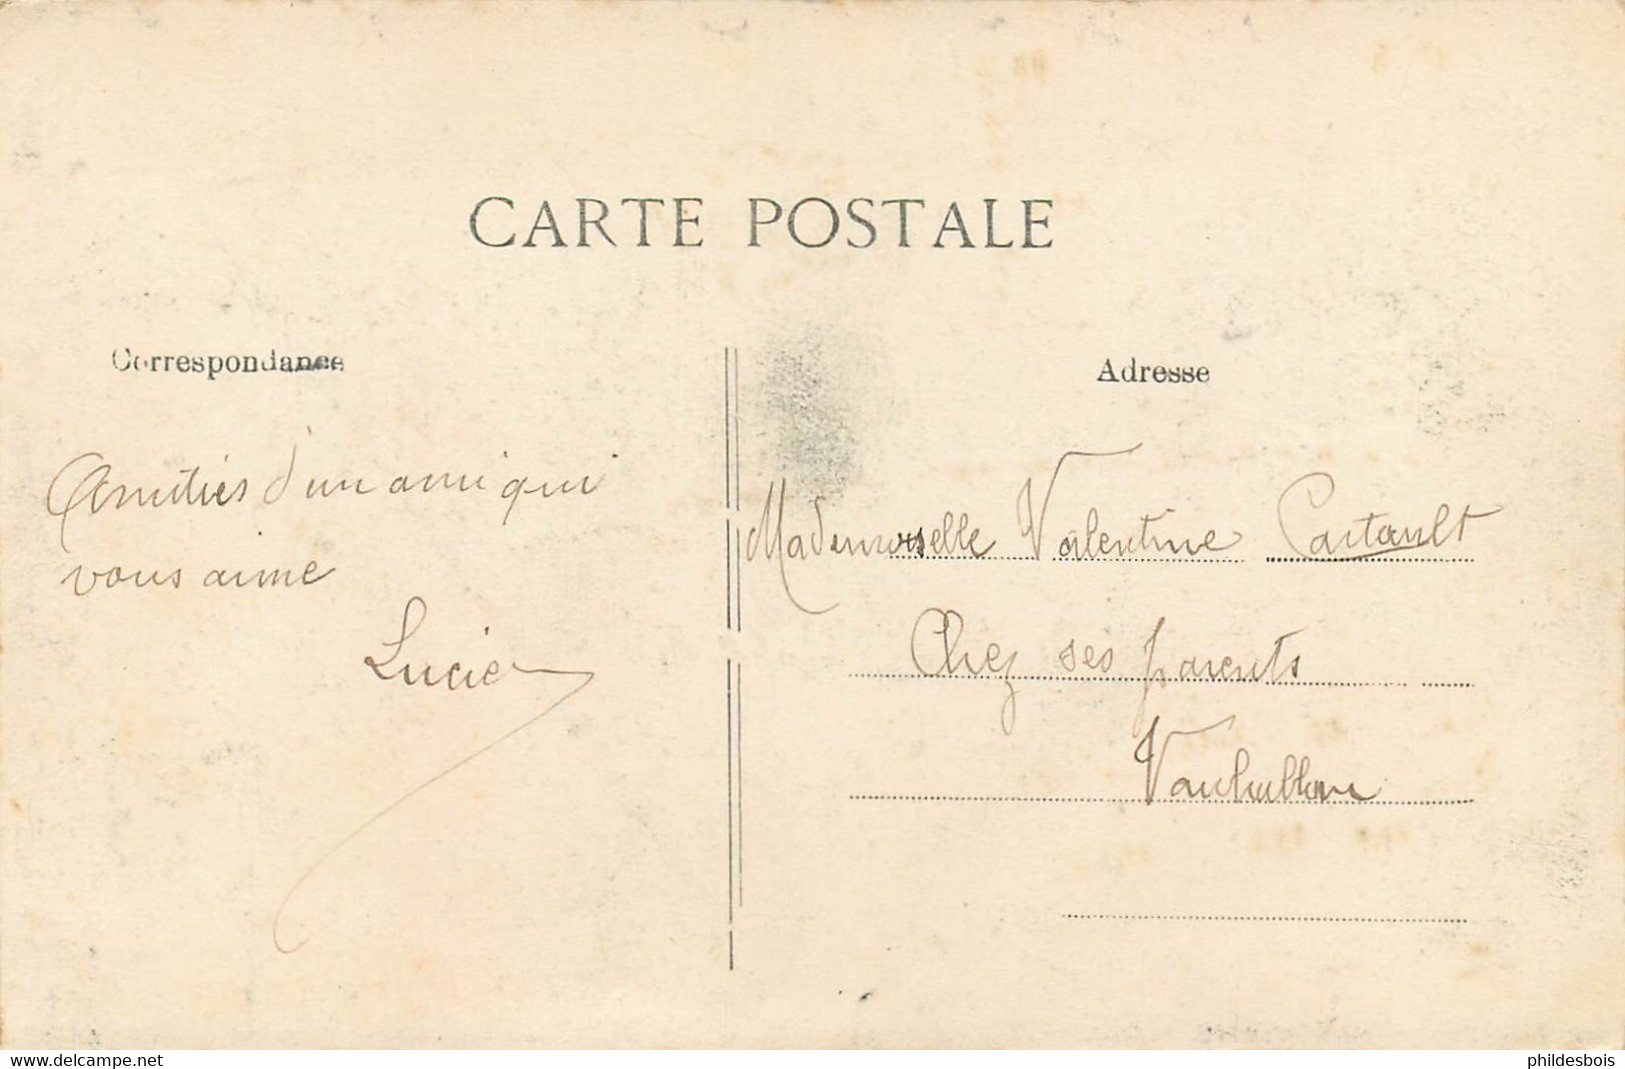 CARTE POSTALE
Correspondance
Adresse
Amitiés d'un ami qui
vous aime
Lucien
Mademoiselle Valentine Cartault
Chez ses parents
Vauhallan
delcampe.net
phildesbois